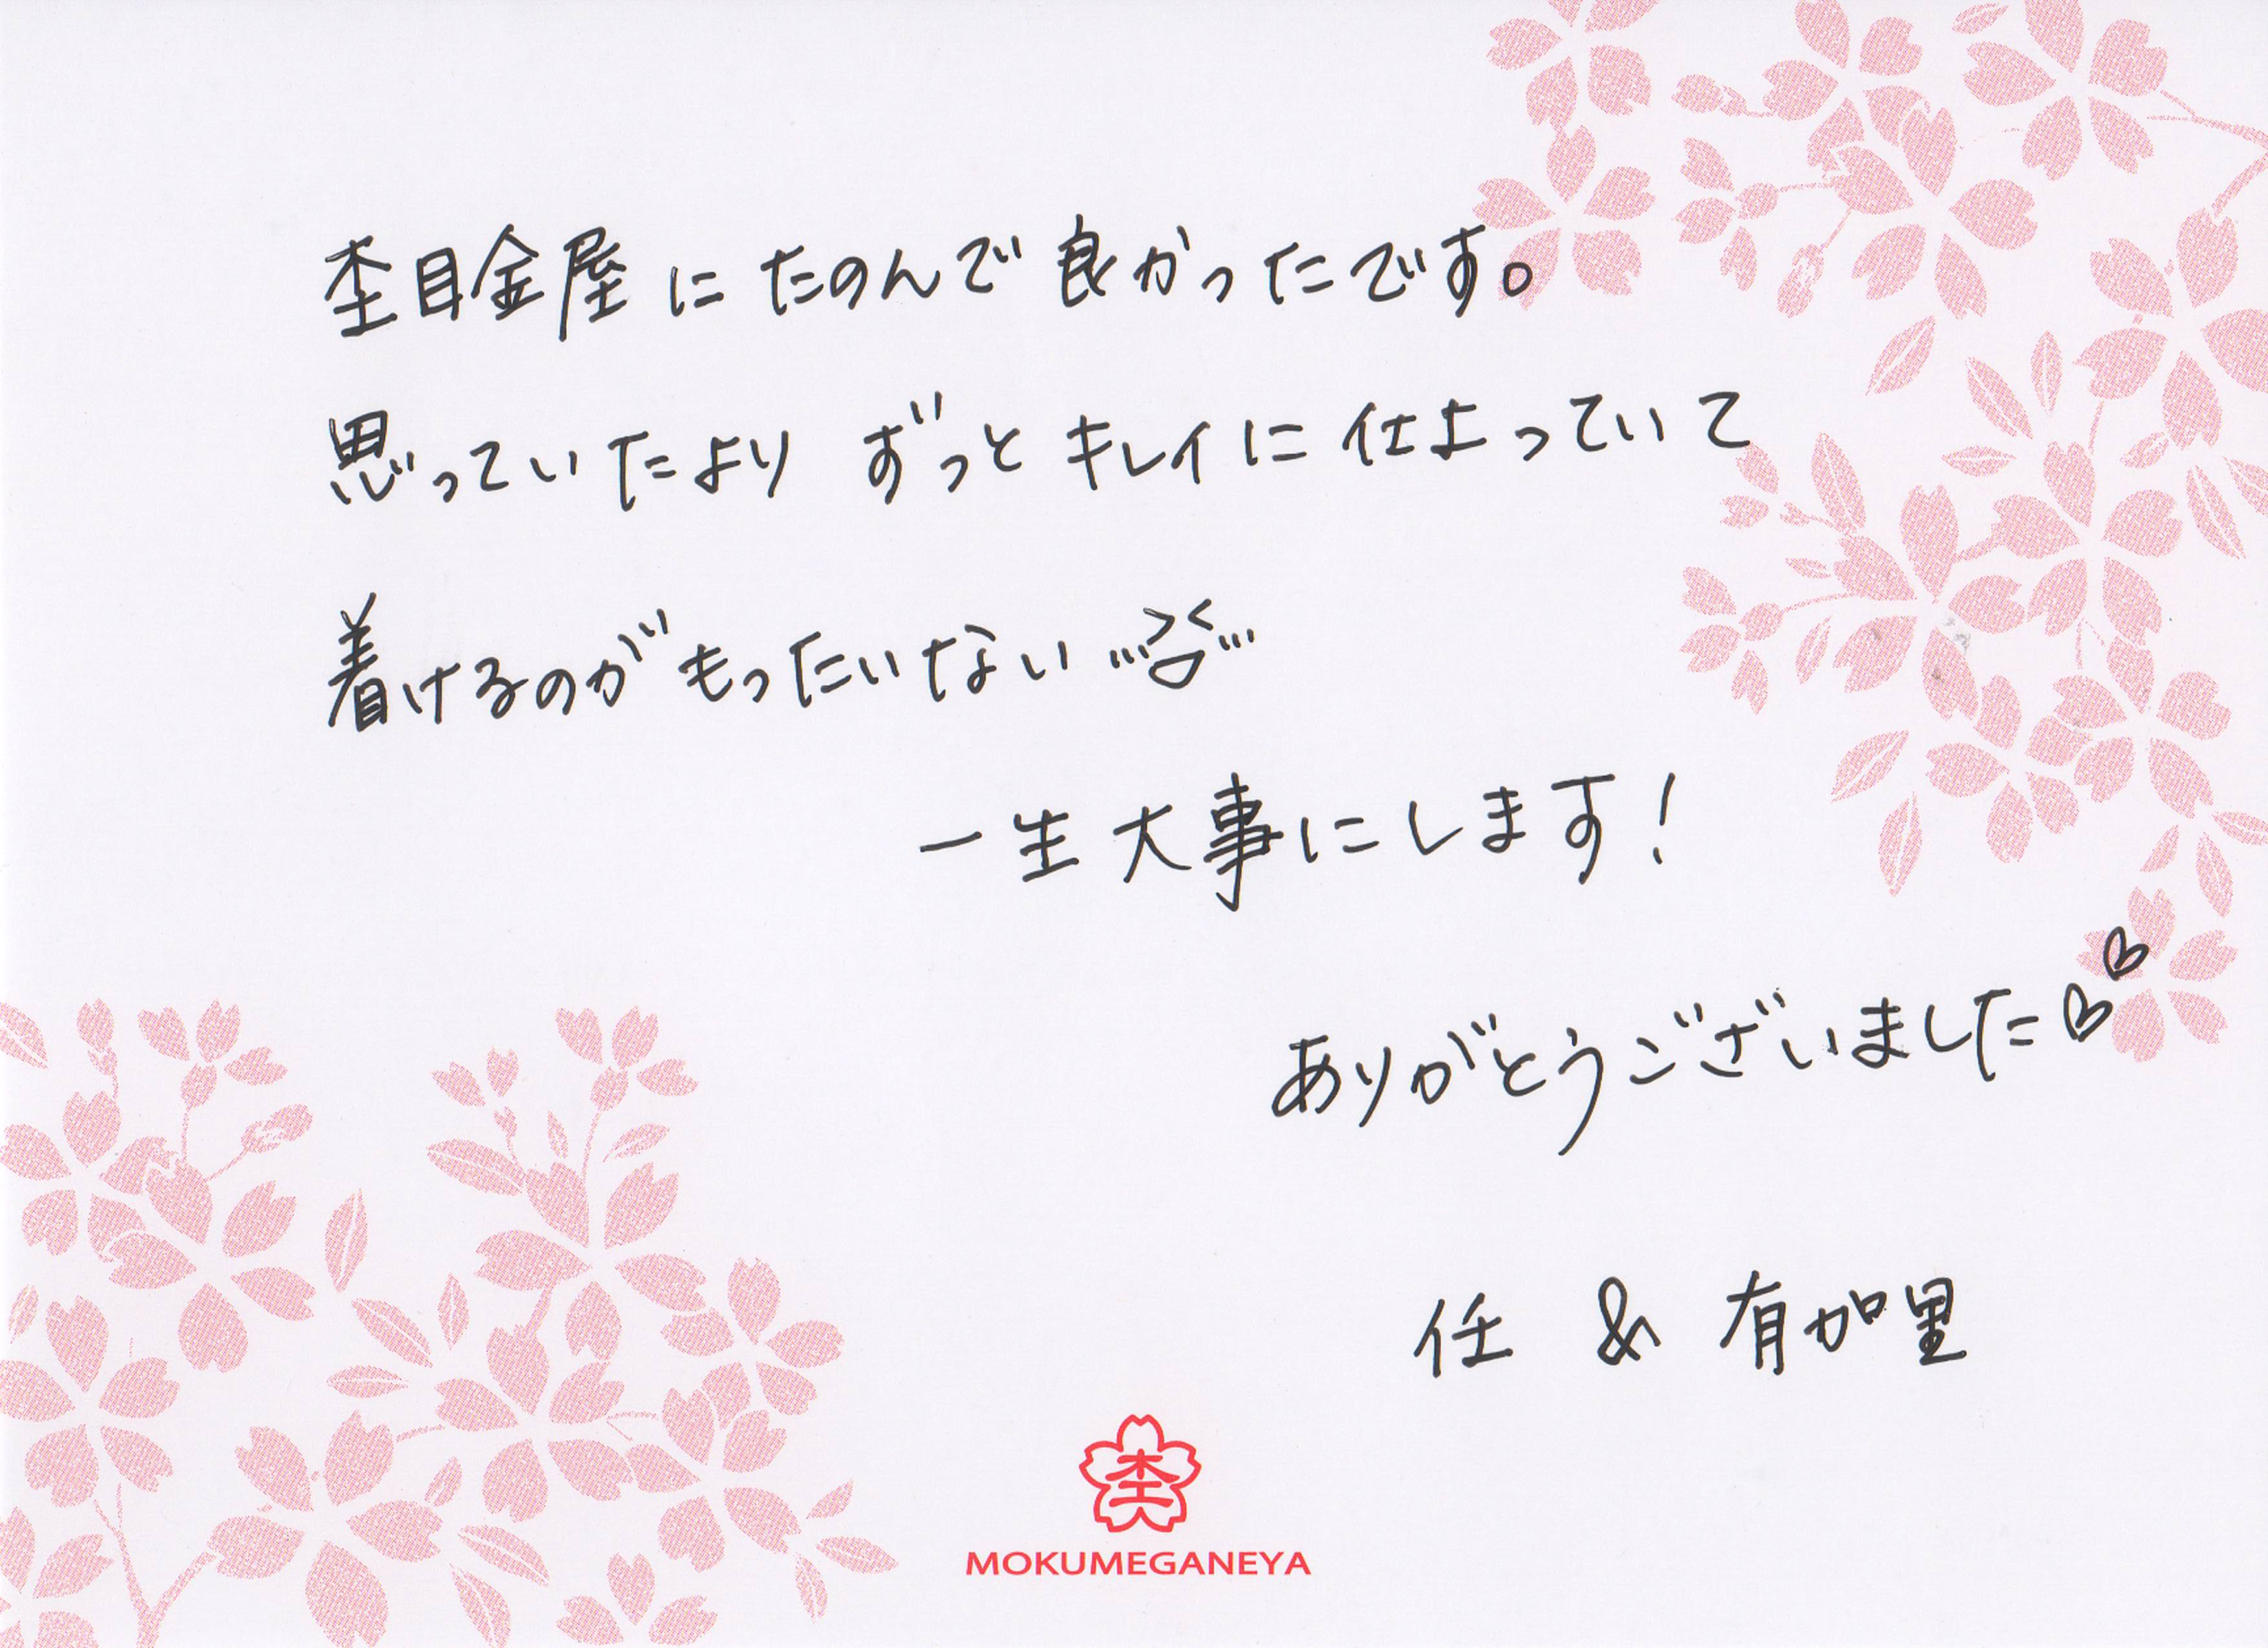 杢目金屋にたのんで良かったです。
思っていたより ずっと キレイに 仕上っていて
着けるのがもったいない
一生大事にします!
ありがとうございました♡♡
任 & 有加里
杢
MOKUMEGANEYA